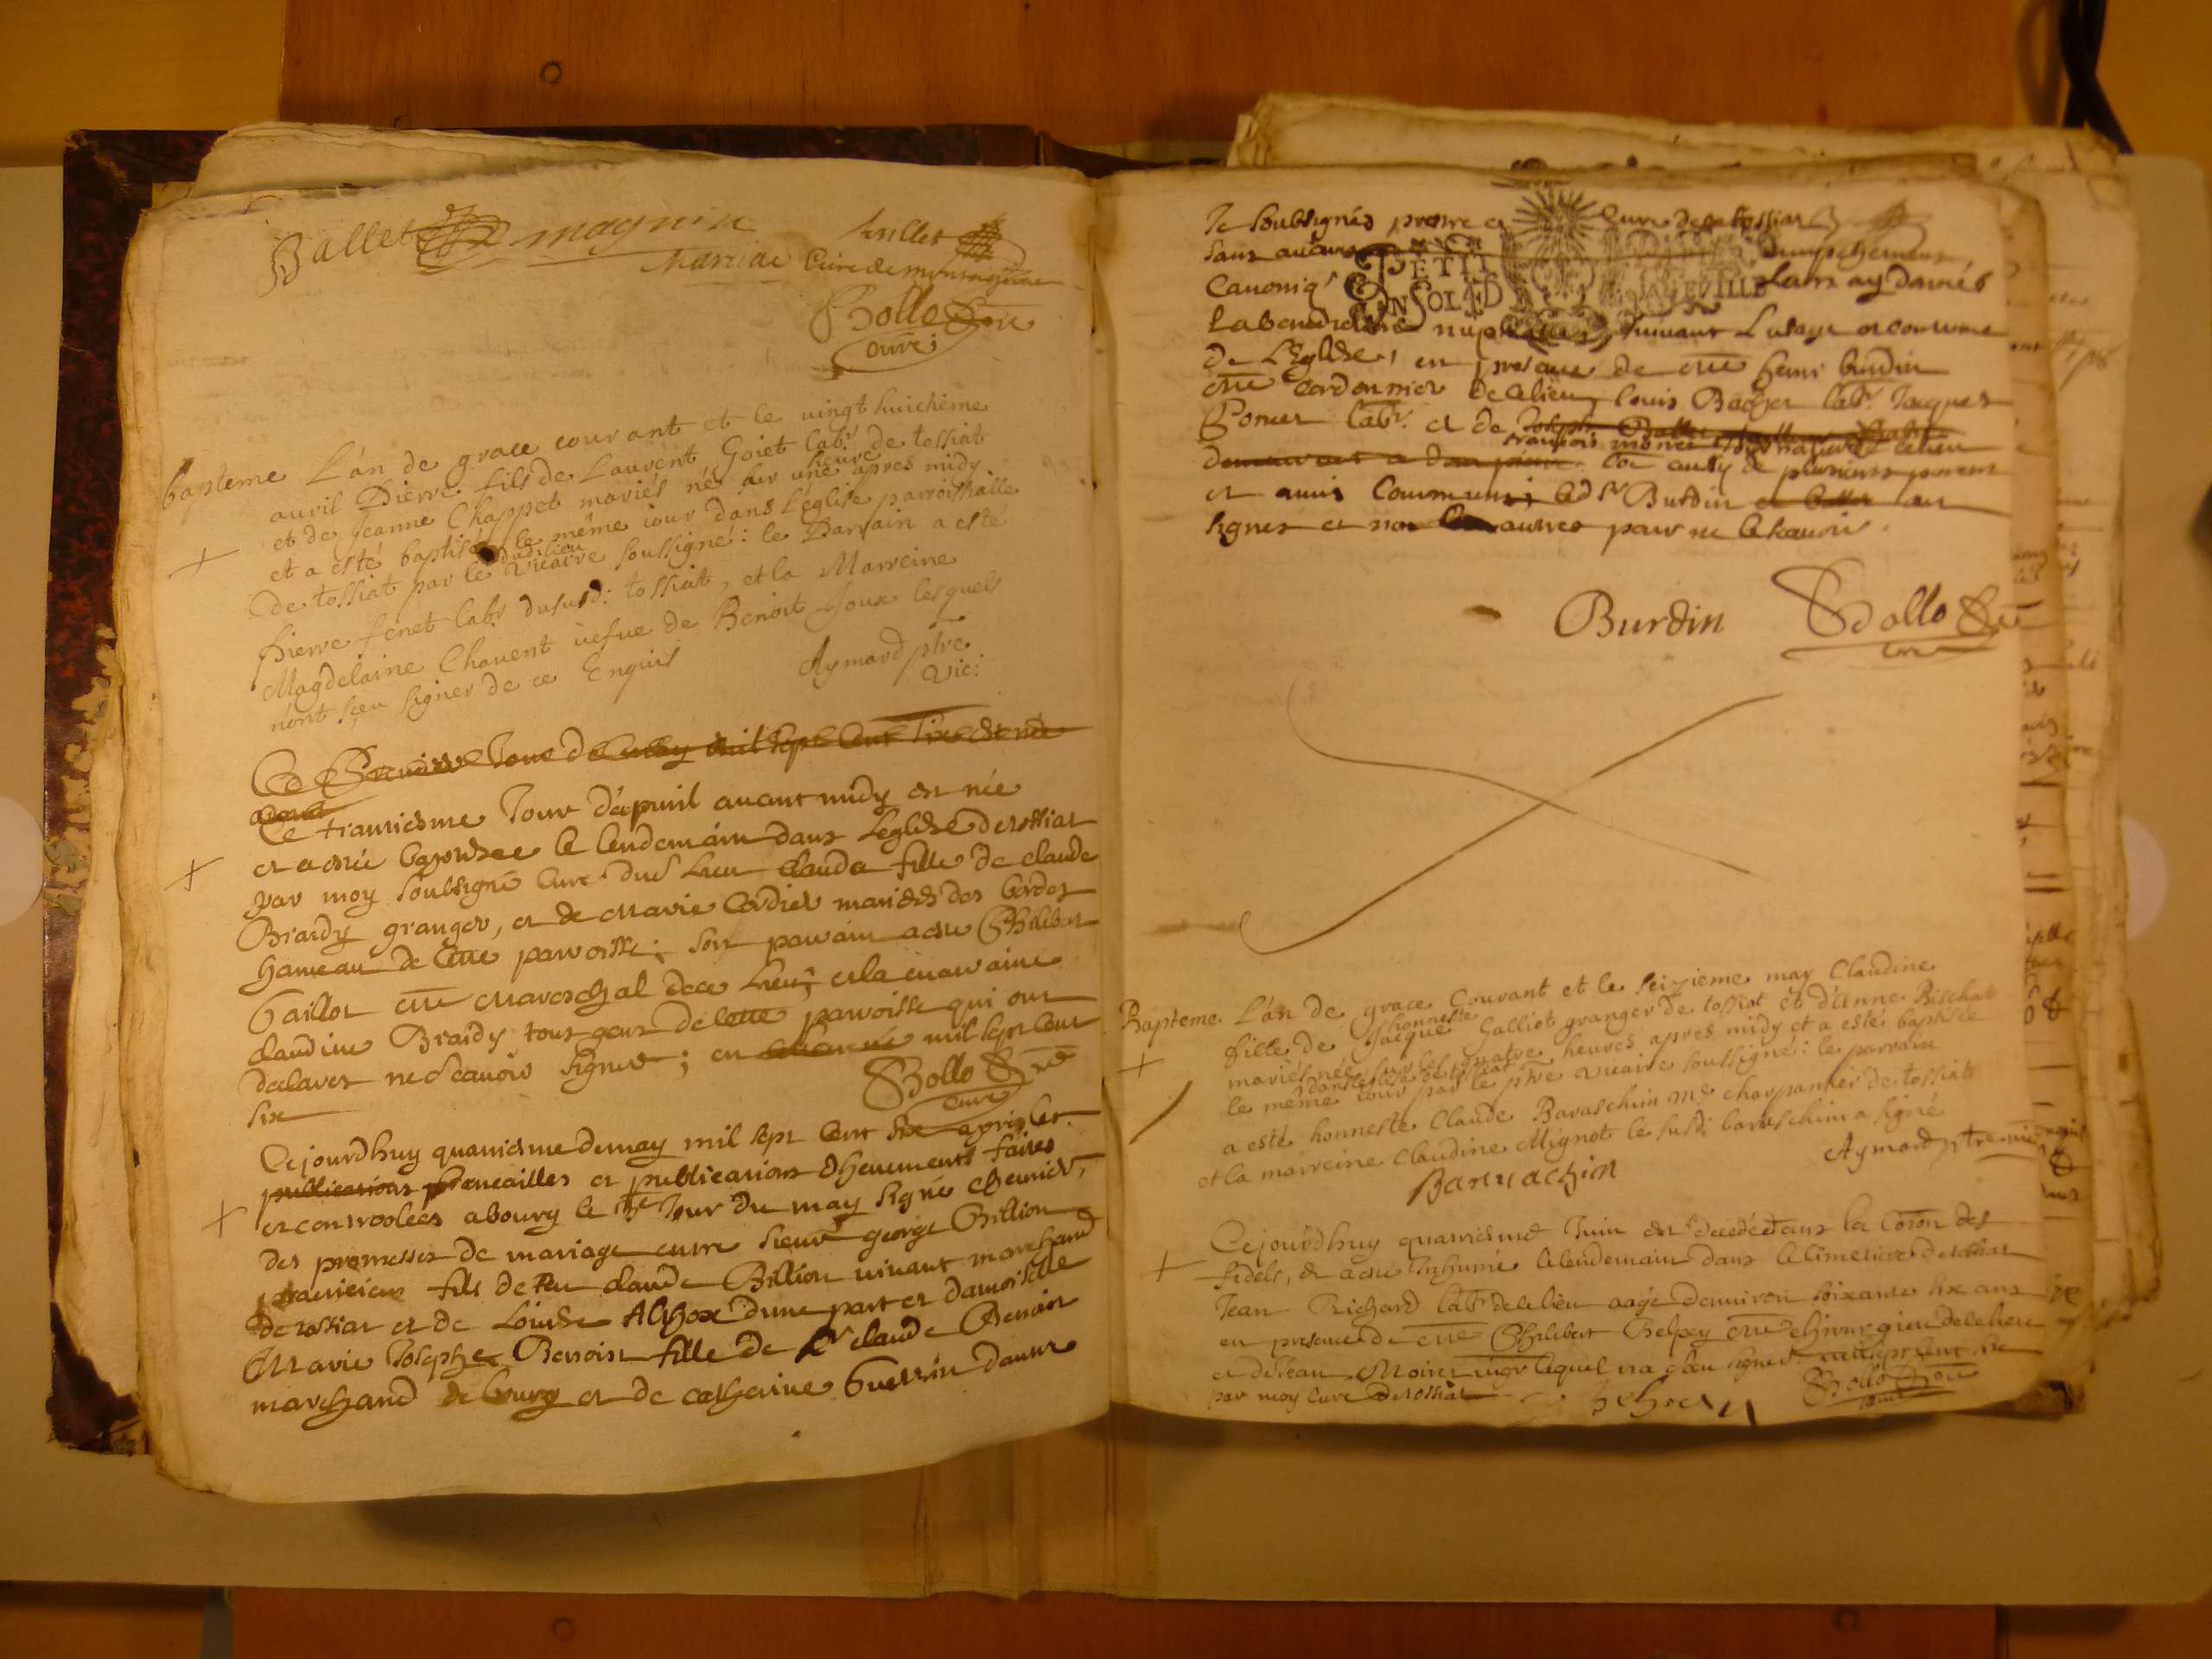 Ballet magnin
Marciac Curé de montagnac
Bollo ptre
curé
bapteme L'àn de grace courant et le uingt huichéme
auril Pierre fils de Laurent Goiet labr de tossiat
et de Jeanne Chappet mariés né sur une heure apres midy
et a esté baptisé le même iour dans l'église parroissialle
de tossiat par le Vicaire dudi lieu soussigné: le Parrain a esté
Pierre fenet labr dususd: tossiat, et la Marreine
Magdelaine Chauent uefue de Benoit Joux lesquels
n'ont sceu signer de ce Enquis
Aymard ptre
Vic:
Ce Jour de may mil sept Cent six est née
Ce troiziesme Jour d'apuril auant midy est née
et a esté baptisee le lendemain dans Leglise de tossiat
par moy soubsigné Curé dud Lieu Clauda fille de claude
Braidy granger, et de Marie Cordier mariés des bordes
hameau de Cette parroisse; son parrain a esté Philibert
Gaillot me mareschal de ce Lieu; et la marraine
claudine Braidy tous gens de cette parroisse qui ont
declarer ne sçauoir signer; en mil sept Cent
six
Bollo ptre
curé
Cejourdhuy quatriesme de may mil sept Cent six apres les
publications fiancailles et publications d'henements faites
et controolées a bourg le Jour du may signé cheurier,
des promesses de mariage entre sieur george Billion
praticien fils de feu claude Billion uiuant marchand
de tossiat et de Louise Alhox d'une part et damoiselle
Marie Josephe Benoist fille de Sr claude Benoist
marchand de bourg et de catherine Guerrin dautre
Je soubsignés prestre et Curé de tossiat
sans aucuns empeschement
Canoniqs Leurs ay donnés
PETIT PAPIER
EN SOL 4 D
La benediction nuptialle suiuant Lusage et coutume
de L'Eglise, en presence de me henri burdin
me Cordonnier de ce lieu, Louis Bacher labr Jacques
Poncet labr. et de Joseph Ballet
françois monet de ce lieu
demeurant a dompierre et aussy de plusieurs parens
et amis Communs; led sr Burdin et Ballet ont
signes et non les autres pour ne le scauoir.
Burdin Bollo ptre
curé
Bapteme. L'án de grace Courant et le seizieme may Claudine
fille de honneste Jacque Galliot granger de tossiat et d'Anne Bischat
mariés née sur les quatre heures apres midy et a esté baptisée
le même iour dans l'eglise de tossiat par le ptre vicaire soussigné: le parrain
a esté honneste Claude Baraschin me charpantier de tossiat
et la marreine Claudine Mignot le susd: baraschin a signé
Baruachin
Aymard ptre vic
Cejourdhuy quatriesme Juin est decedé dans la Coion des
fidels, & a esté Inhumé le lendemain dans le cimetiere de tossiat
Jean Richard labr de ce lieu aagé d'enuiron soixante six ans
en presence de me Philibert Belpey me chirurgien de ce lieu
et de Jean Moiret lequel n'a sceu signer
par moy Curé de tossiat
Bollo ptre
curé